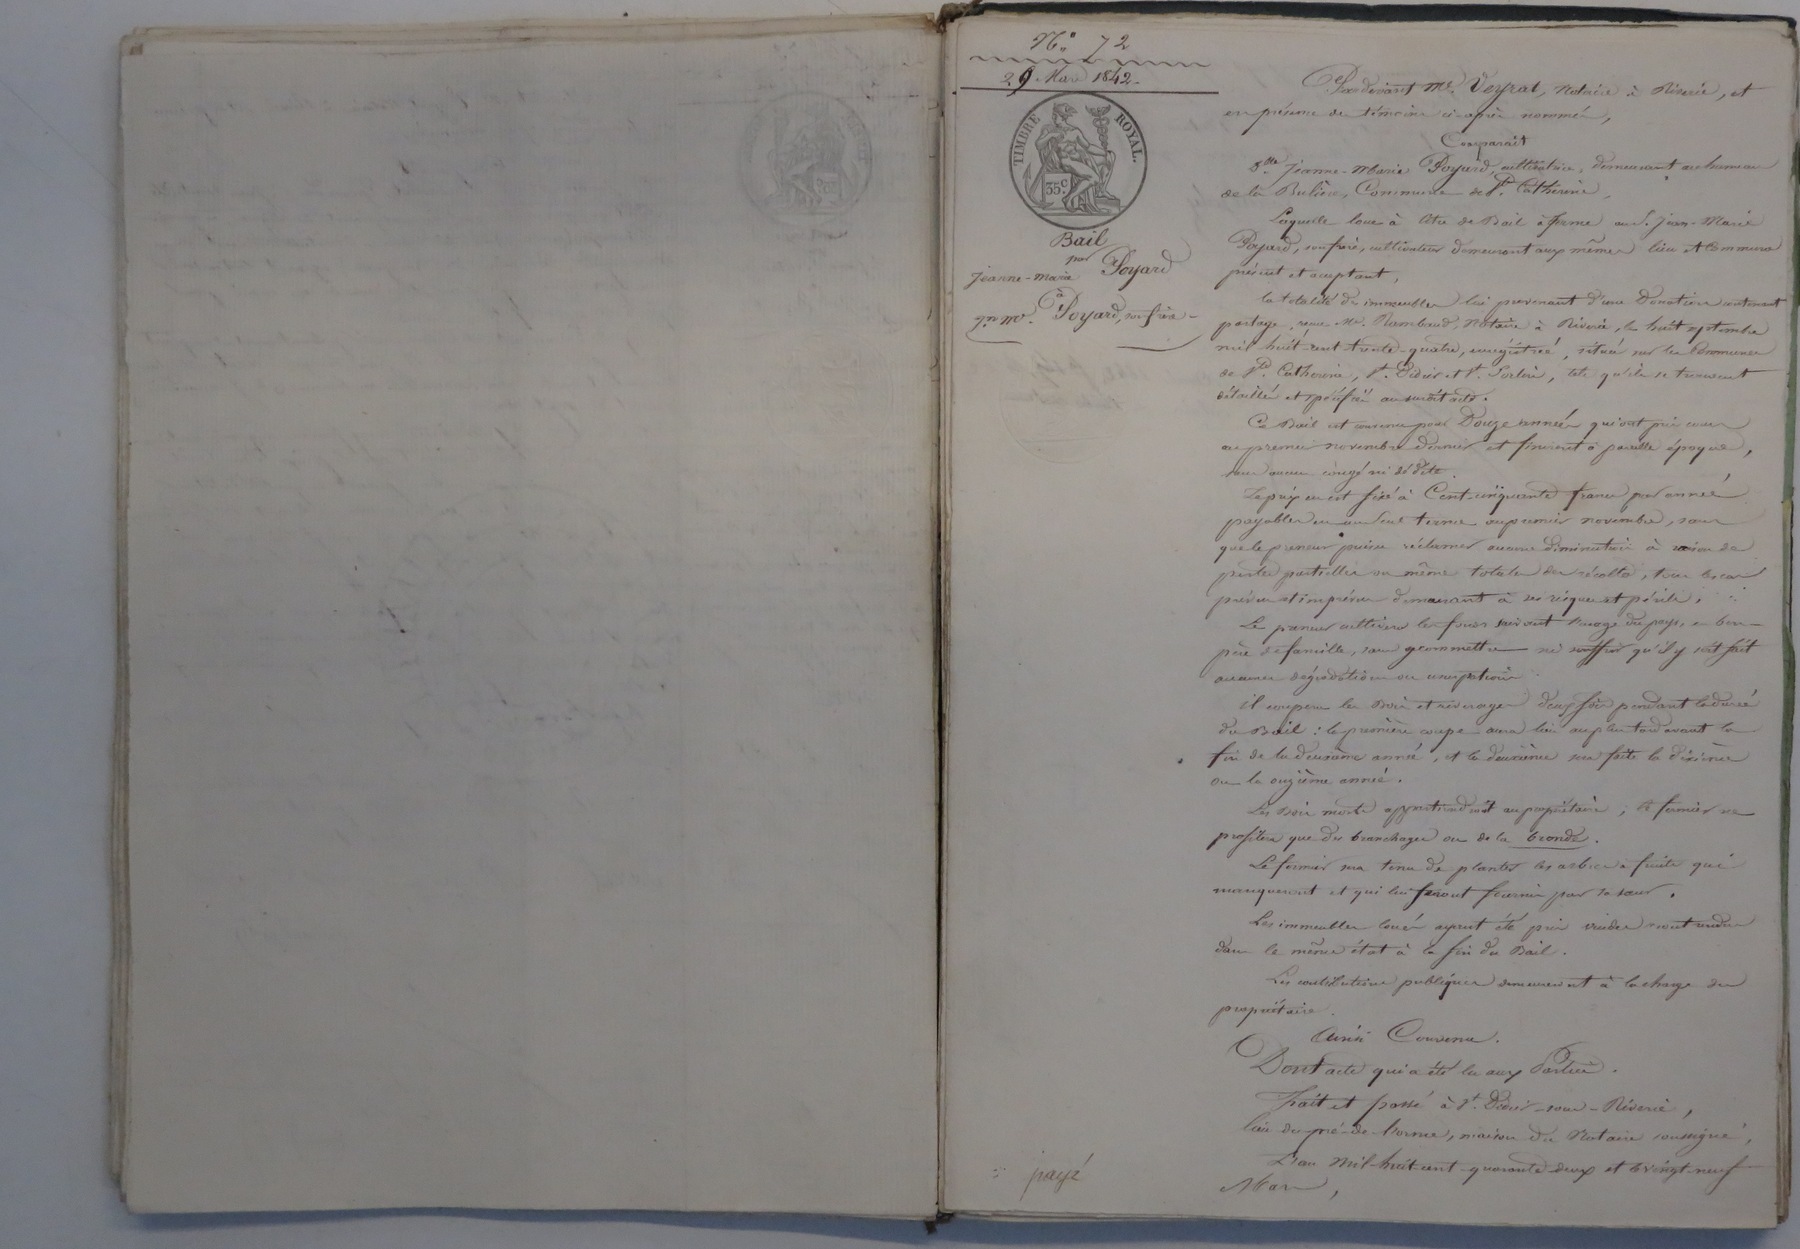 N° 72
29 Mars 1842.
TIMBRE ROYAL.
35 C.
Bail
par
Jeanne-Marie Poyard
à
Jn. M. Poyard, son frère
Pardevant Me. Veyrat, Notaire à Riverie, et
en présence des témoins ci-après nommés,
Comparaît
Dlle. Jeanne-Marie Poyard, cultivatrice, demeurant au hameau
de la Bulière, Commune de Ste. Catherine,
Laquelle loue à titre de Bail à ferme au S. Jean-Marie
Poyard, son frère, cultivateur demeurant aux mêmes lieu et Commune
présent et acceptant,
la totalité des immeubles lui provenant d'une Donation contenant
partage, reçue Me. Rambaud, Notaire à Riverie, le huit septembre
mil huit-cent trente-quatre, enregistrée, situés sur les Communes
de Ste. Catherine, St. Didier et St. Sorlin, tels qu'ils se trouvent
détaillés et spécifiés au susdit acte.
Ce Bail est convenu pour Douze années qui ont pris cours
au premier novembre dernier et finiront à pareille époque,
sans aucun congé ni dédite.
Le prix en est fixé à Cent-cinquante francs par année
payables en un seul terme au premier novembre, sans
que le preneur puisse réclamer aucune diminution à raison de
pertes partielles ou même totales des récoltes, tous les cas
prévus et imprévus demeurant à ses risques et périls.
Le preneur cultivera les fonds suivant l'usage du pays, en bon
père de famille, sans y commettre ni souffrir qu'il y soit fait
aucunes dégradations ou usurpations.
il coupera les Bois et réverages deux fois pendant la durée
du Bail : la première coupe aura lieu au plus tard avant la
fin de la deuxième année, et la deuxième sera faite la dixième
ou la onzième année.
Les Bois morts appartiendront au propriétaire, le fermier ne
profitera que des branchages ou de la bronde.
Le fermier sera tenu de planter les arbres à fruits qui
manqueront et qui lui seront fournis par sa sœur.
Les immeubles loués ayant été pris vuides seront rendus
dans le même état à la fin du Bail.
Les contributions publiques demeureront à la charge du
propriétaire.
Ainsi Convenu.
Dont acte qui a été lu aux Parties.
Fait et passé à St. Didier-sous-Riverie,
lieu du pré-de-l'orme, maison du Notaire soussigné,
L'an Mil-huit-cent-quarante-deux et le vingt-neuf
Mars,
payé